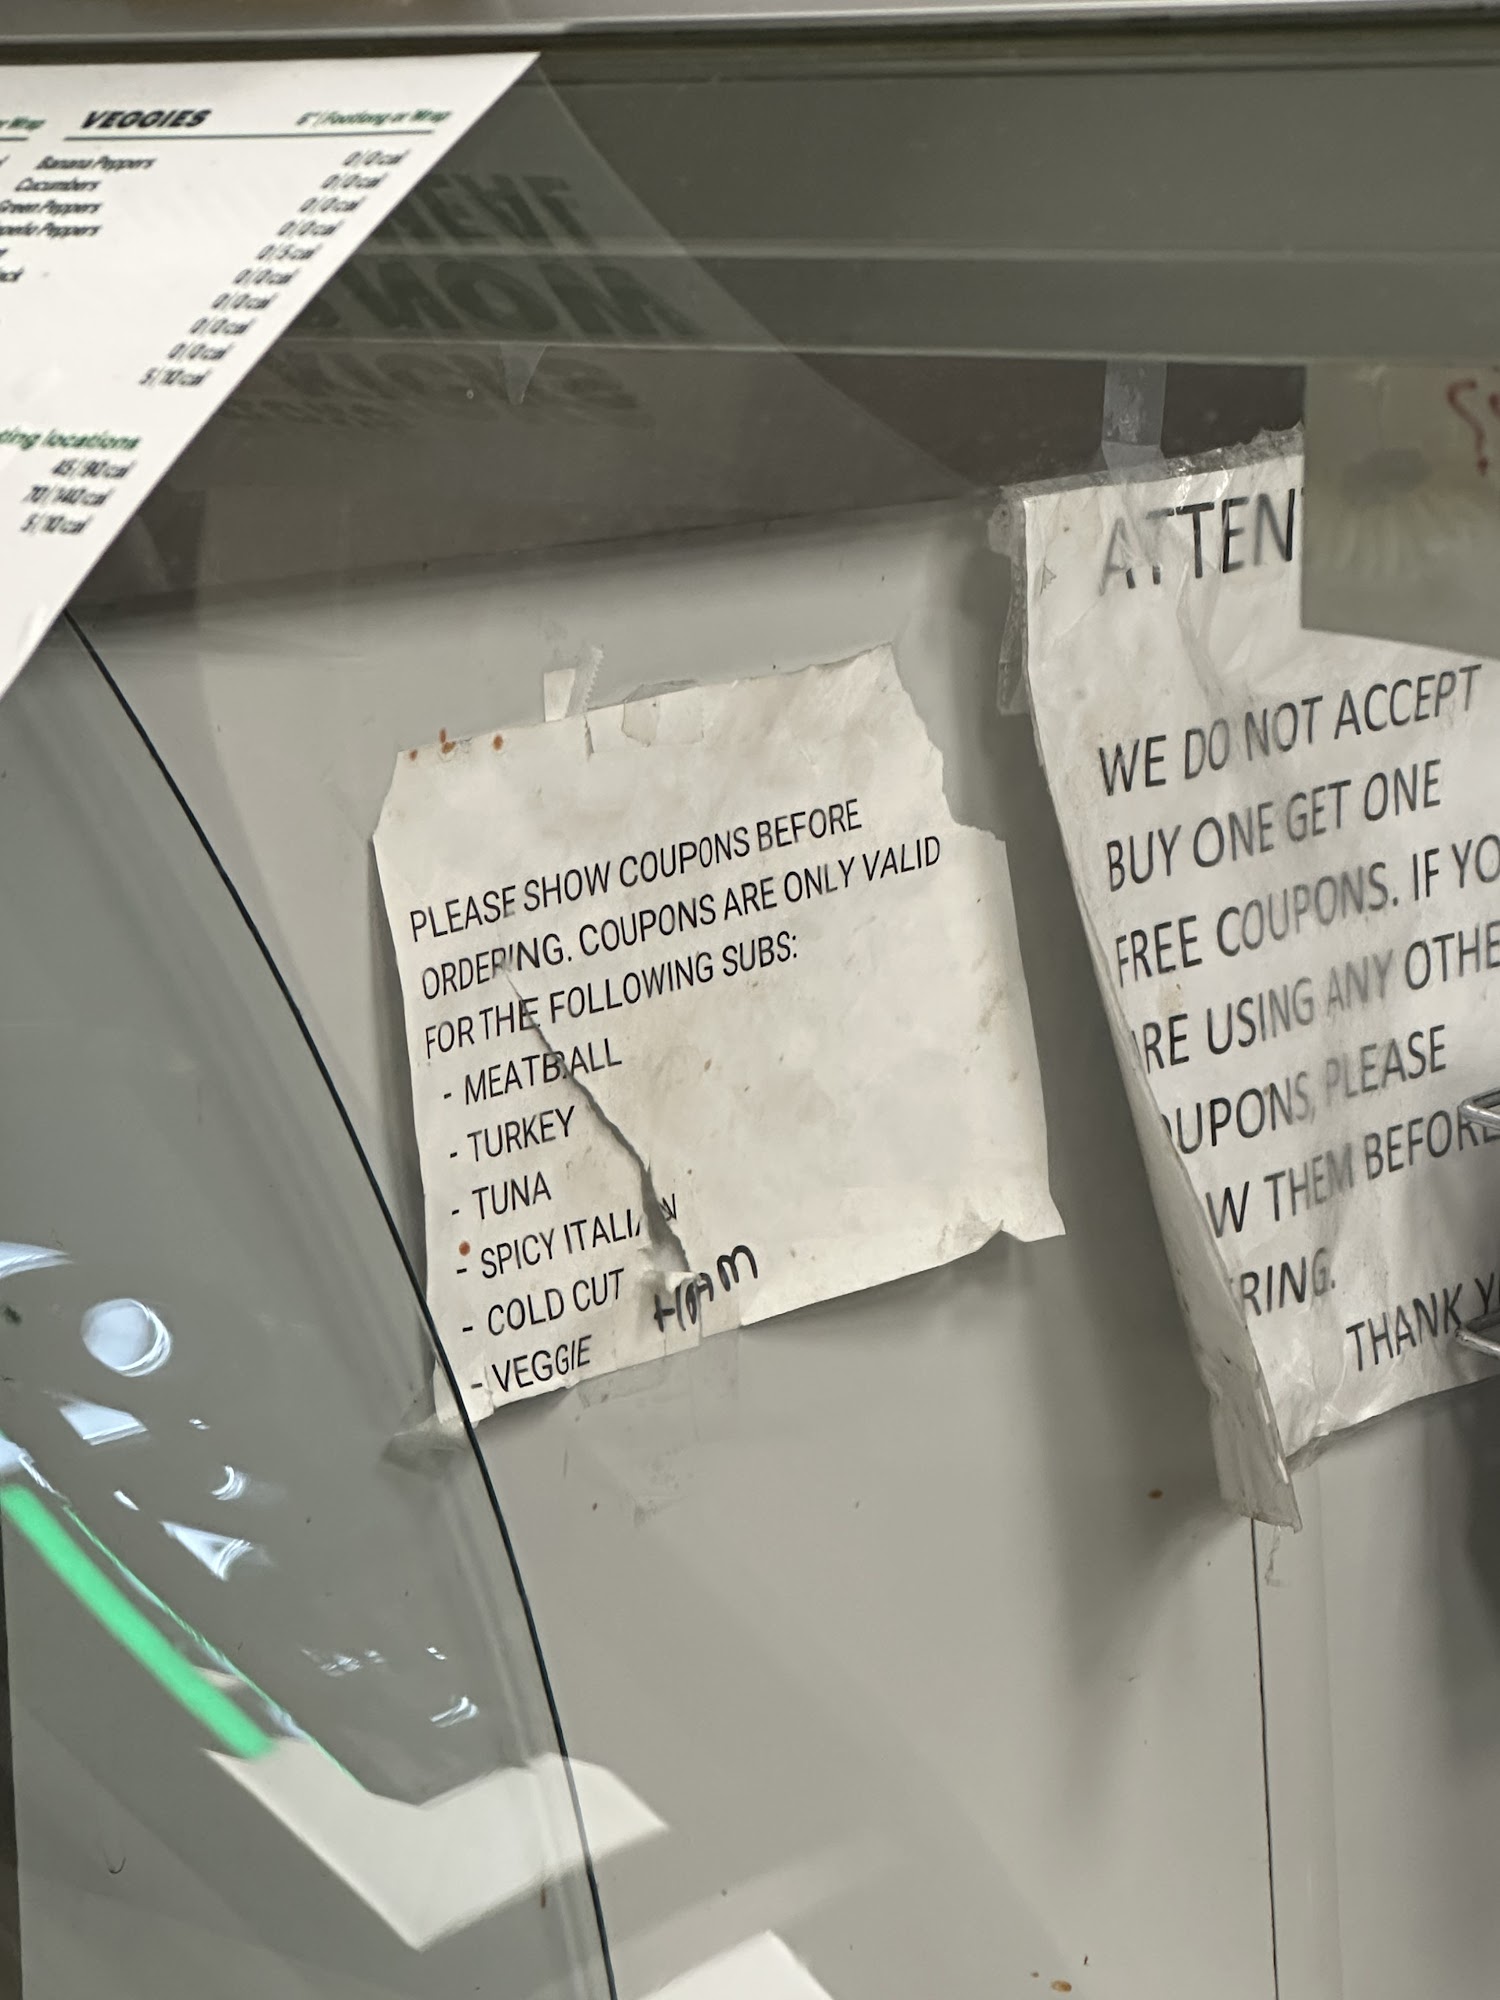 VEGGIES 6" | Footlong or Wrap
Banana Peppers 0 | 0 cal
Cucumbers 0 | 0 cal
Green Peppers 0 | 0 cal
Peppers 0 | 0 cal
0 | 5 cal
0 | 0 cal
0 | 0 cal
0 | 0 cal
0 | 0 cal
5 | 10 cal
locations
45 | 90 cal
70 | 140 cal
5 | 10 cal
PLEASE SHOW COUPONS BEFORE
ORDERING. COUPONS ARE ONLY VALID
FOR THE FOLLOWING SUBS:
- MEATBALL
- TURKEY
- TUNA
- SPICY ITALIAN
- COLD CUT
HAM
- VEGGIE
ATTEN
WE DO NOT ACCEPT
BUY ONE GET ONE
FREE COUPONS. IF YO
RE USING ANY OTHE
OUPONS, PLEASE
W THEM BEFORE
RING.
THANK Y